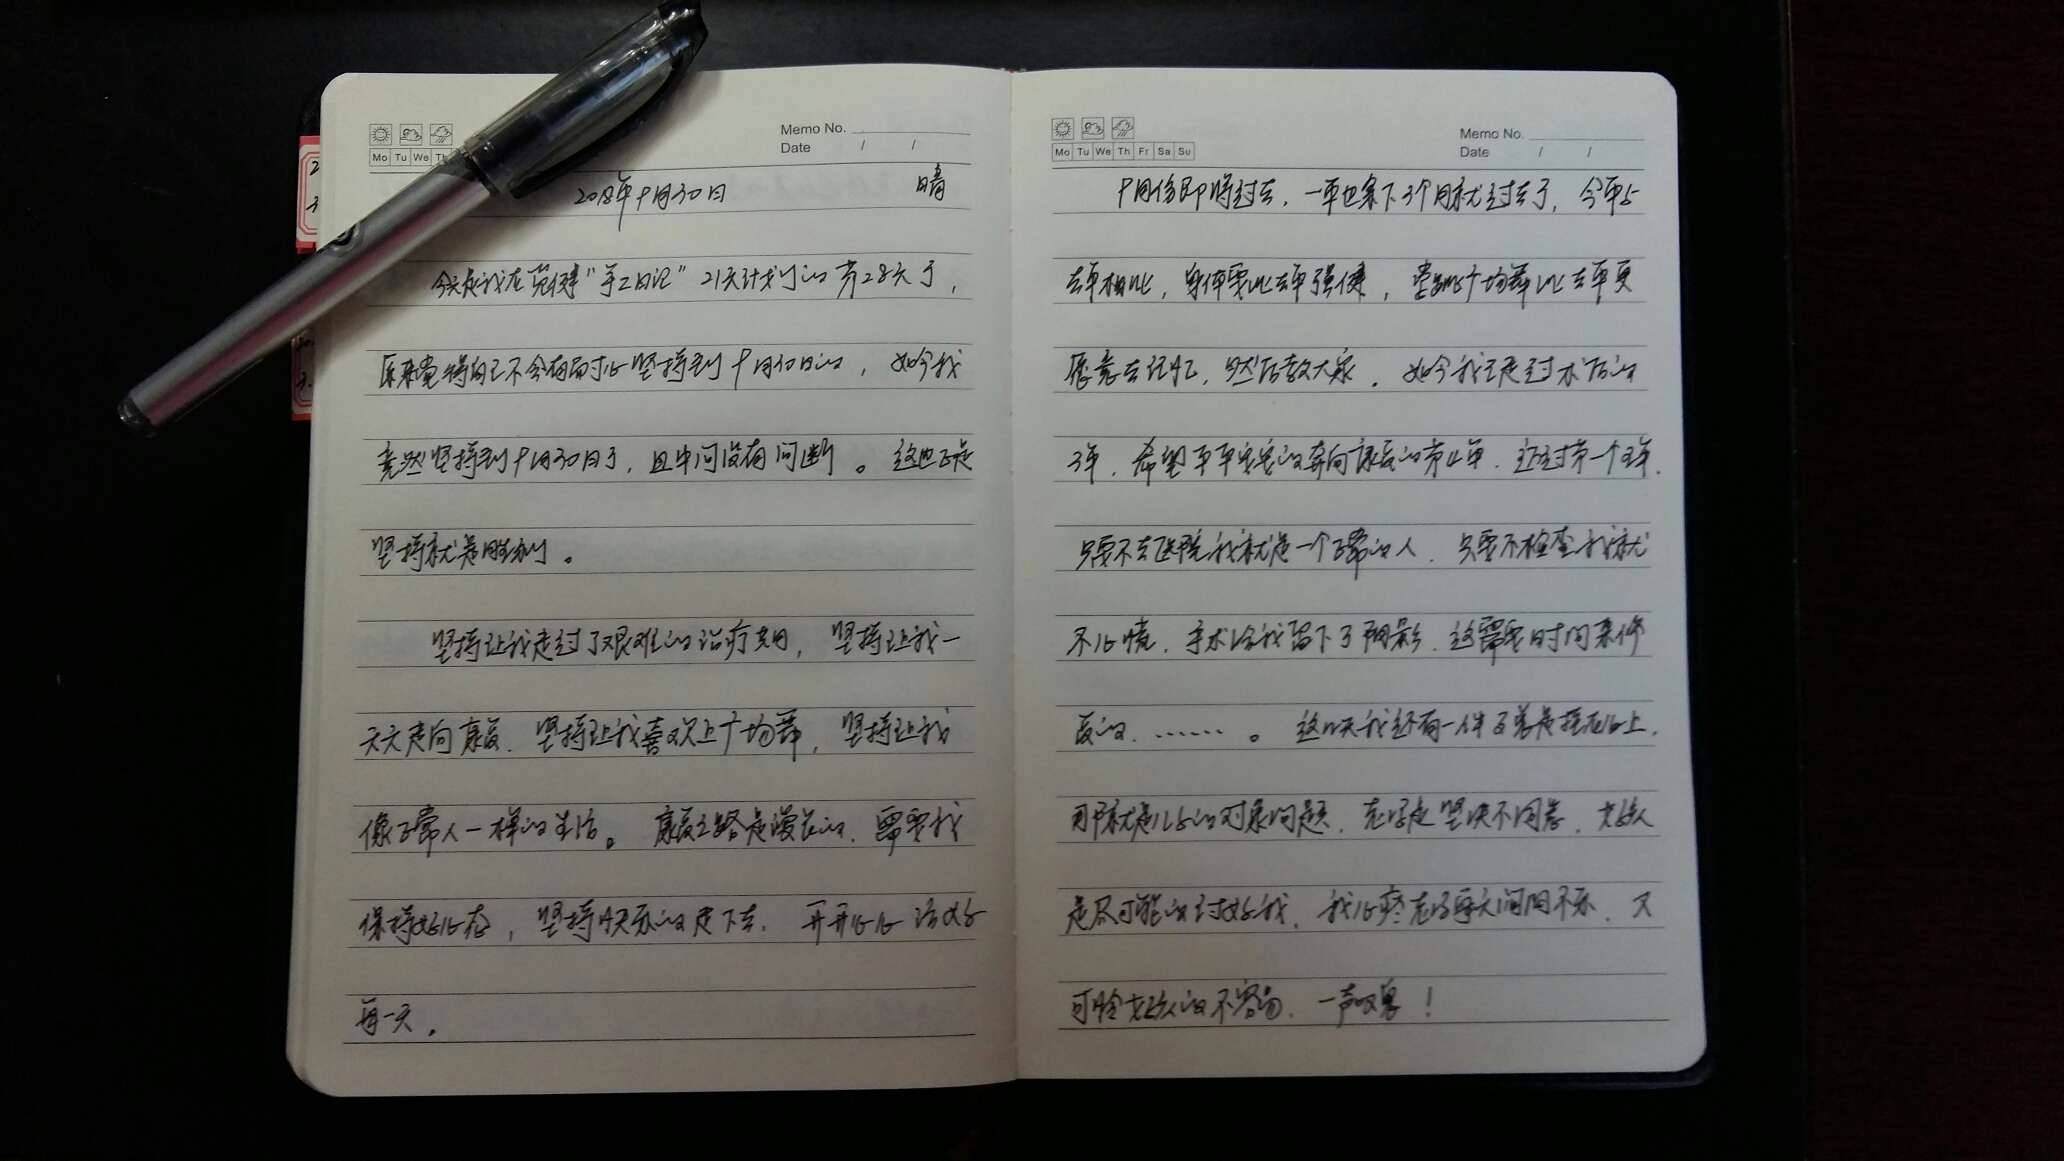 Mo Tu We Th
Memo No.
Date / /
2018年9月30日 晴
今天是我在 "手工日记" 21天计划的第28天了,
原来觉得自己不会有耐心坚持到9月30日的,如今我
竟然坚持到9月30日了,且中间没有间断。这也正是
坚持就是胜利。
坚持让我走过了艰难的治疗期,坚持让我一
天天走向康复.坚持让我喜欢上广场舞,坚持让我
像正常人一样的生活。康复之路是漫长的.需要我
保持好心态,坚持快乐的走下去.开开心心活好
每一天.
Mo Tu We Th Fr Sa Su
Memo No.
Date / /
9月份即将过去.一年也余下3个月就过去了,今年与
去年相比,身体要比去年强健,学跳广场舞比去年更
愿意去记忆,然后教大家.如今我已走过术后的
3年.希望平平安安的奔向康复的第4年.迈过第一个5年.
只要不去医院我就是一个正常的人.只要不检查我就
不心慌.手术给我留下了阴影.这需要时间来修
复的.……。这几天我还有一件事总是挂在心上.
那就是儿子的对象问题.老公是坚决不同意.女孩
是尽可能的讨好我.我心疼老公每天闷闷不乐.又
可怜女孩的不容易.一声叹息!